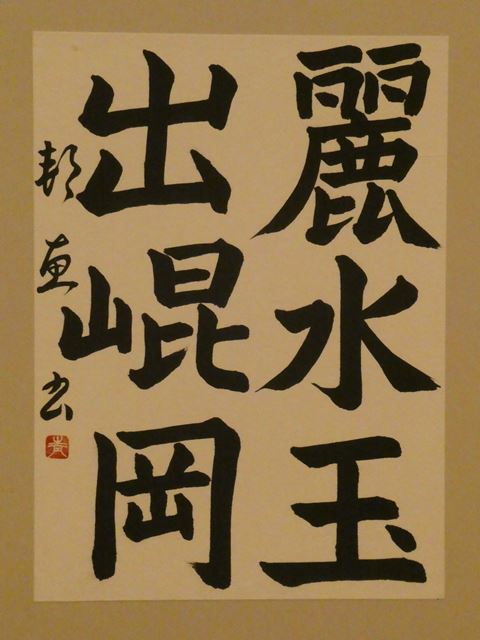 麗水玉
出崐岡
邦恵书
黄